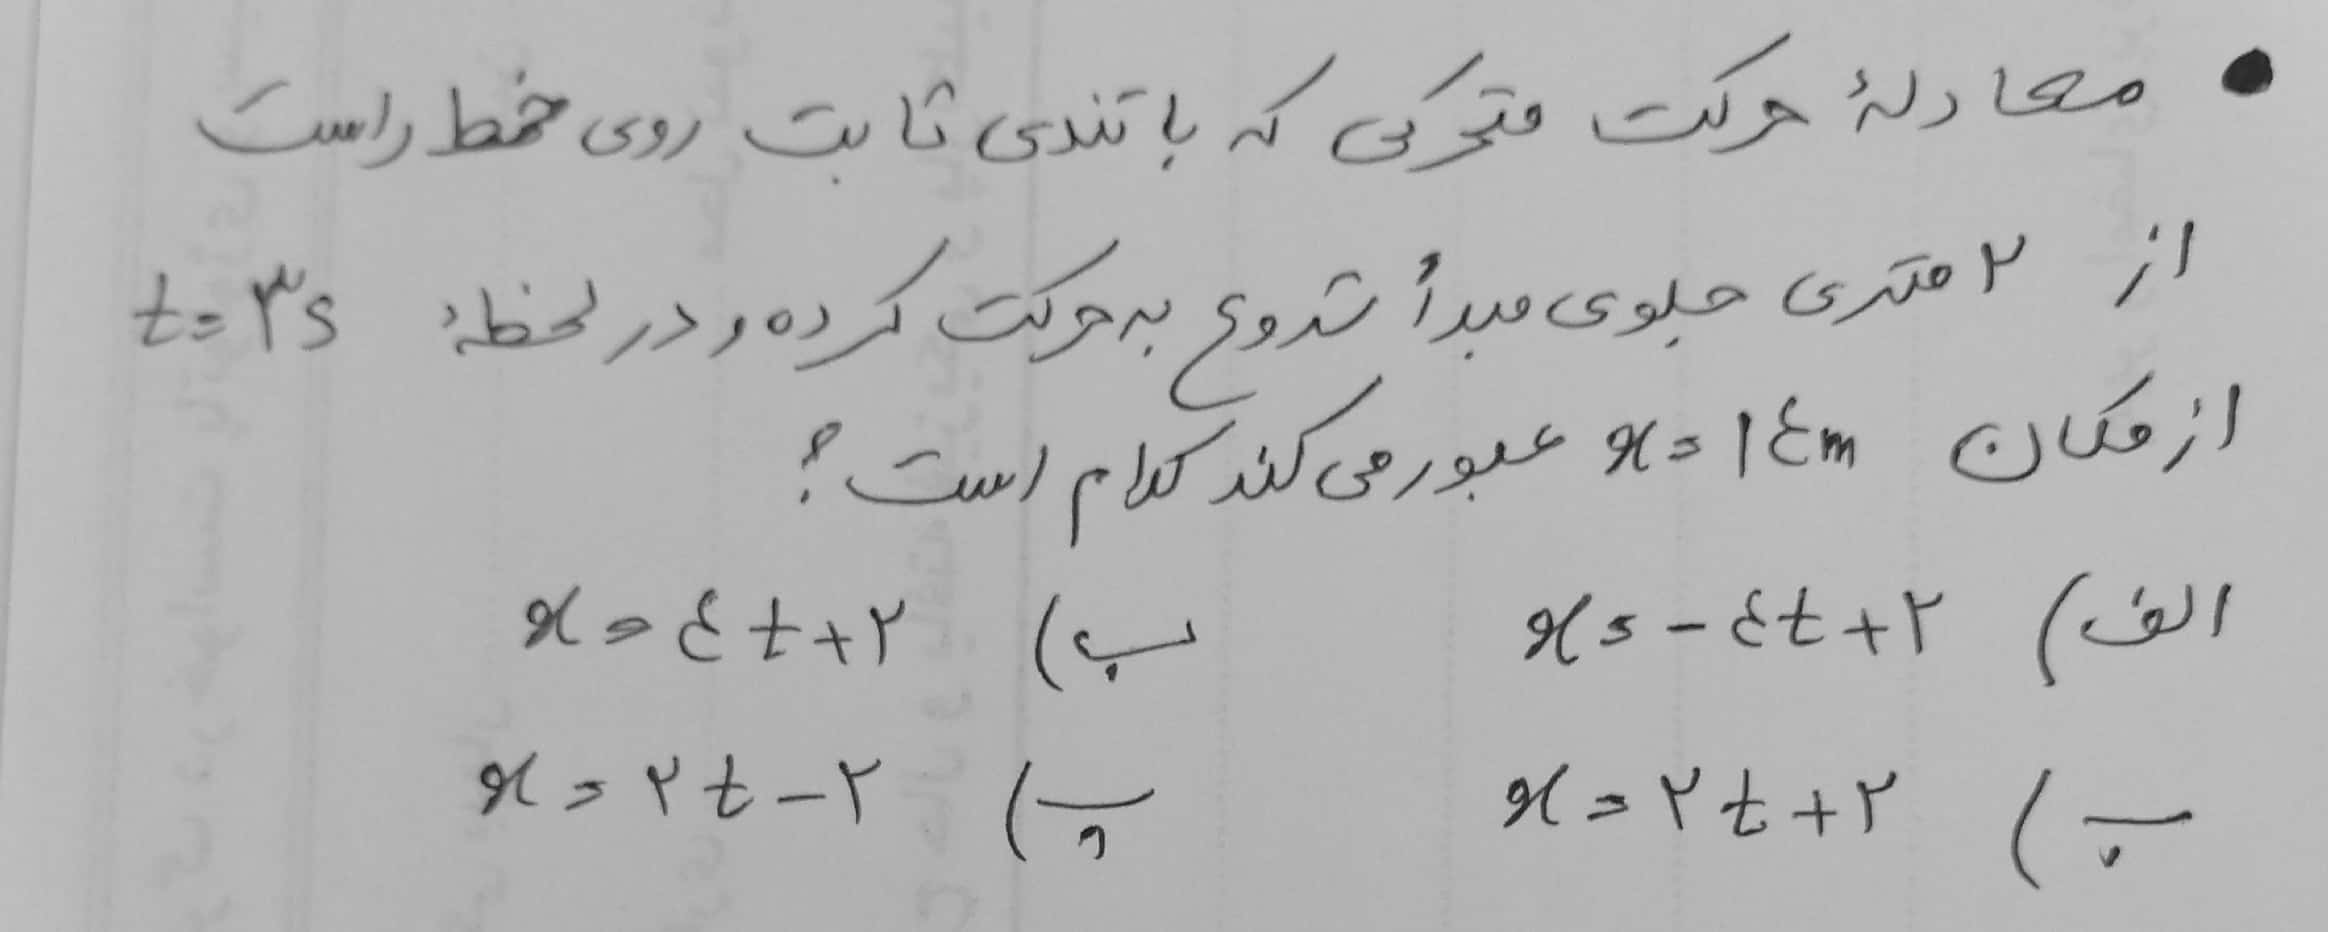 • معادلهٔ حرکت متحرکی که با تندی ثابت روی خط راست
از ۲ متری جلوی مبدأ شروع به حرکت کرده و در لحظهٔ t=۳s
از مکان x=۱۴m عبور می‌کند کدام است؟
الف) x=-۴t+۲ ب) x=۴t+۲
پ) x=۲t+۲ ت) x=۲t-۲